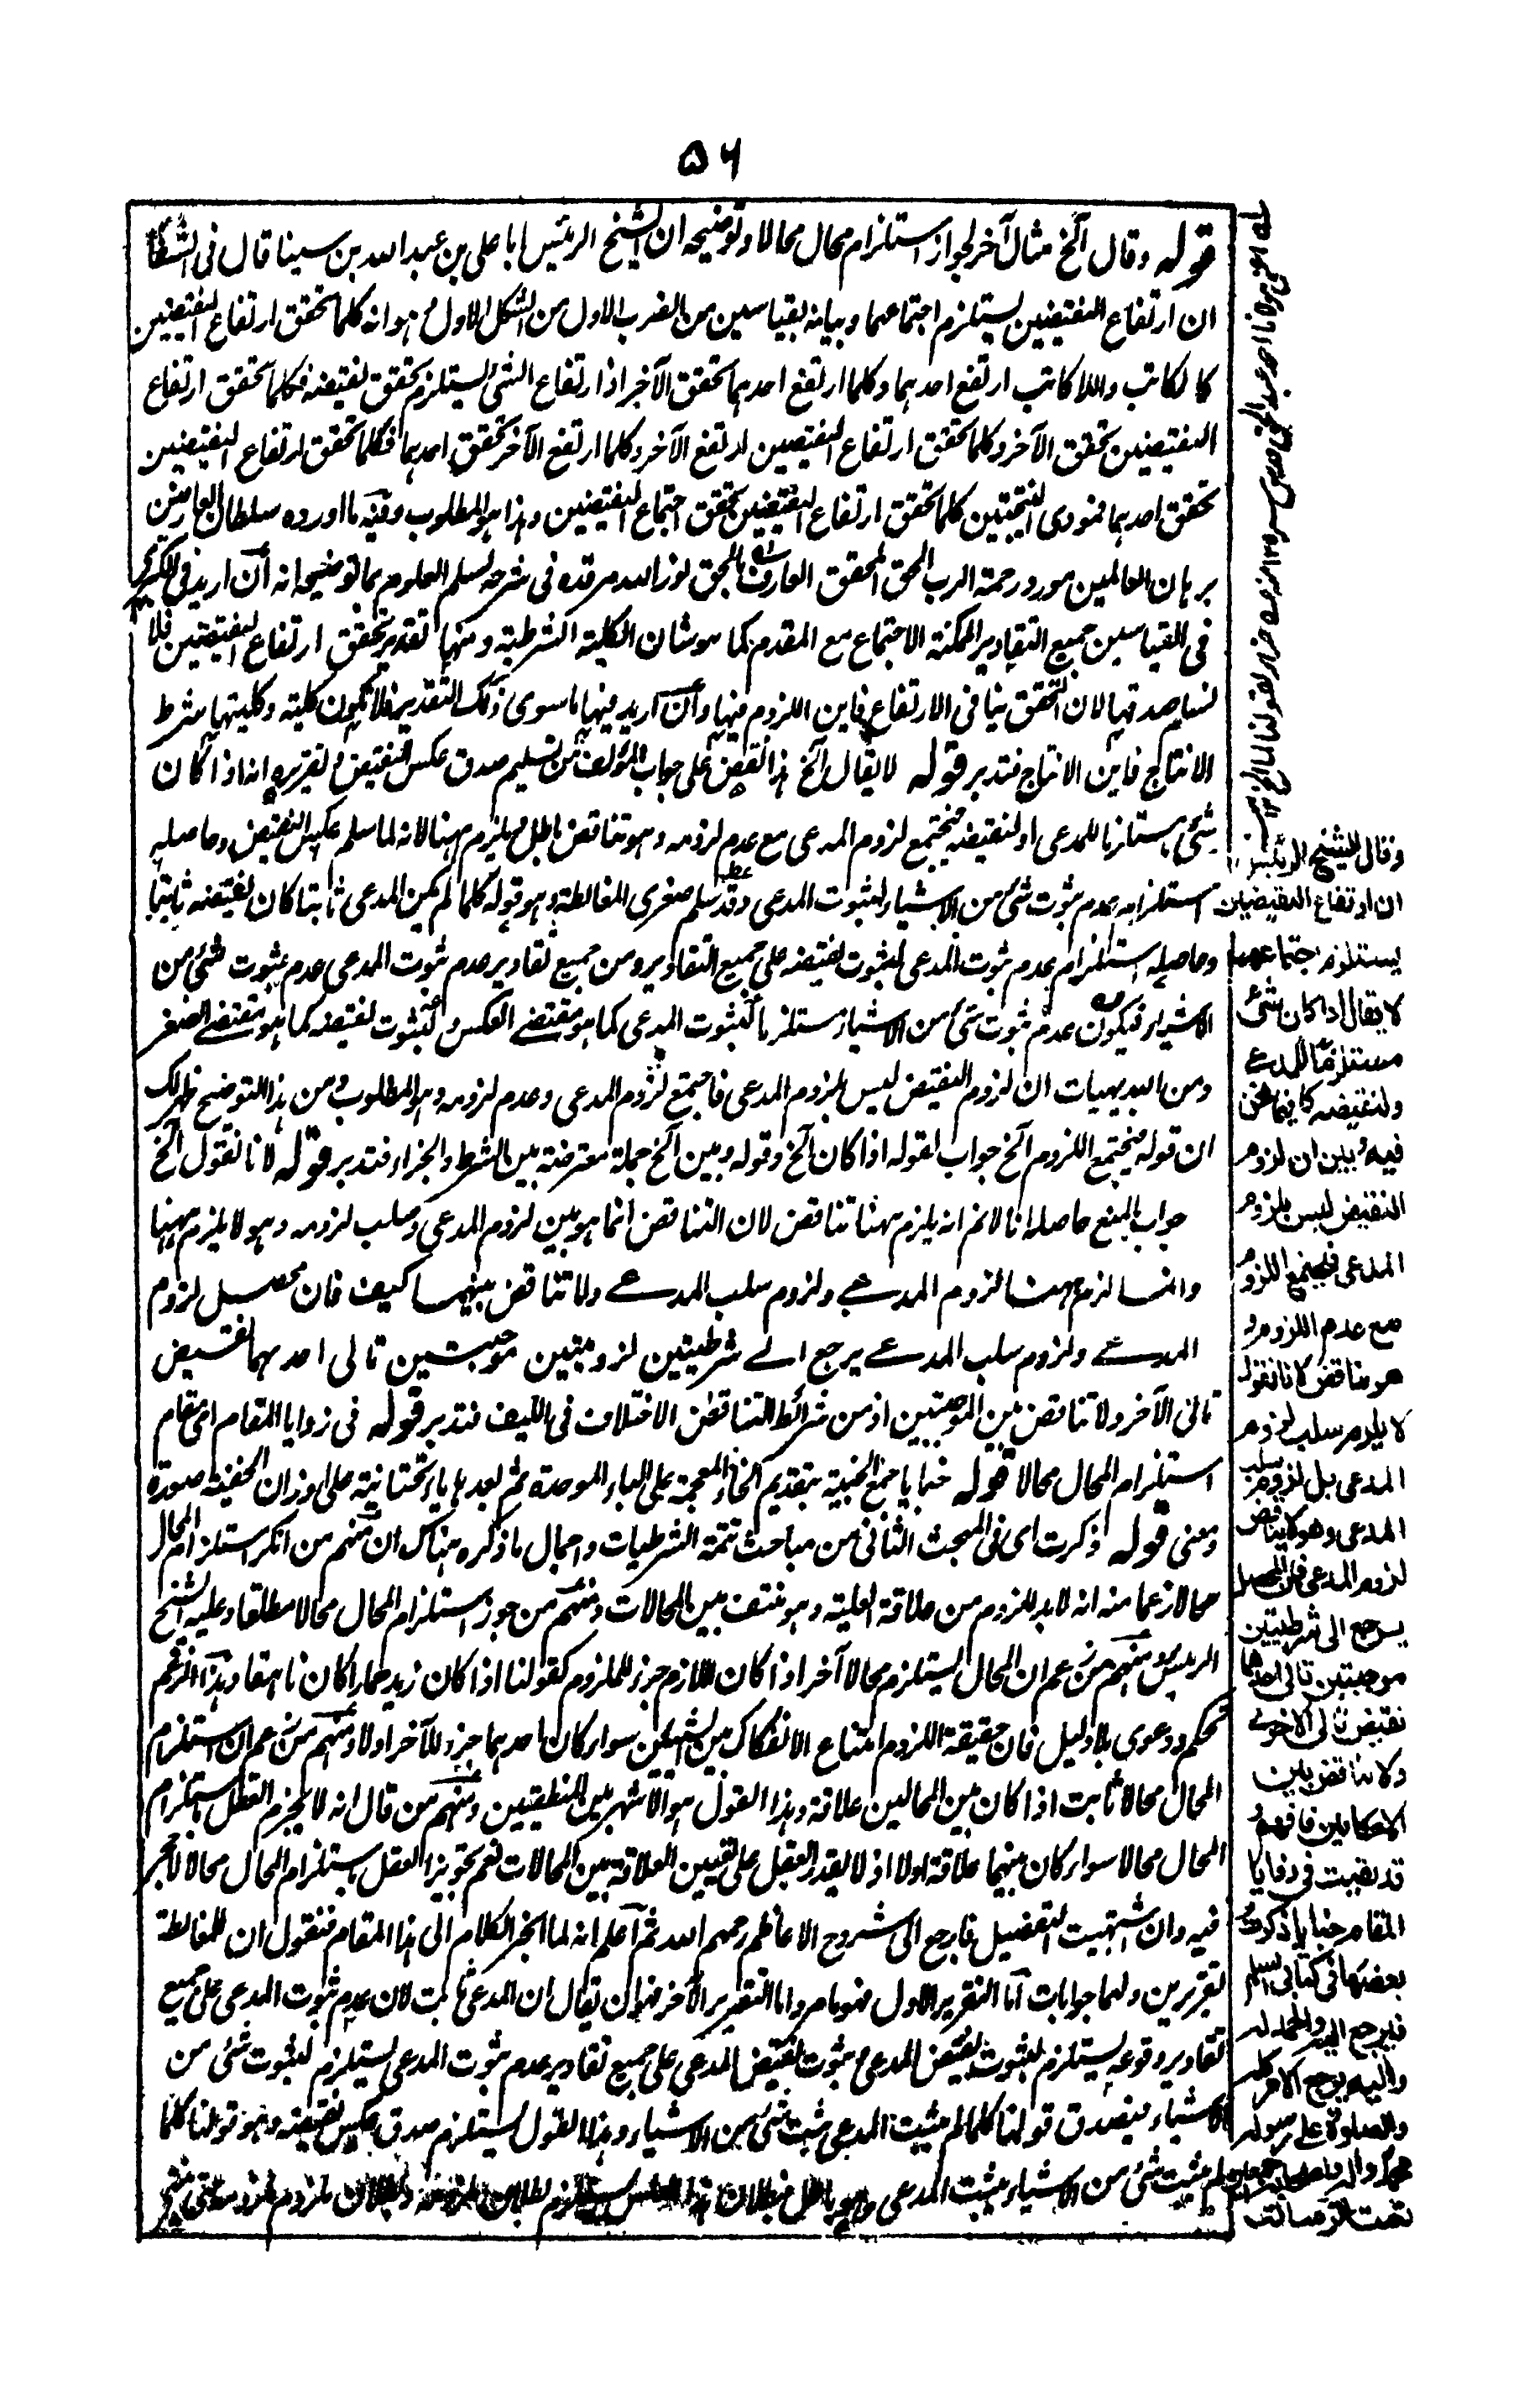 ٥٦
قوله وقال الخ مثال آخر لجواز استلزام محال محالا وتوضيحه ان الشيخ الرئيس ابا على بن عبد الله بن سينا قال فى الشفاء
ان ارتفاع النقيضين يستلزم اجتماعهما وبيانه بقياسين من الضرب الاول من الشكل الاول وهو انه كلما تحقق ارتفاع النقيضين
كالكاتب واللاكاتب ارتفع احدهما وكلما ارتفع احدهما تحقق الآخر اذ ارتفاع الشئ يستلزم تحقق نقيضه فكلما تحقق ارتفاع
النقيضين تحقق الآخر وكلما تحقق ارتفاع النقيضين ارتفع الآخر وكلما ارتفع الآخر تحقق احدهما فكلما تحقق ارتفاع النقيضين
تحقق احدهما فمودى النتيجتين كلما تحقق ارتفاع النقيضين تحقق اجتماع النقيضين وهذا هو المطلوب وفيه ما اورده سلطان العارفين
برهان العالمين مورد رحمة الرب الحق المحقق العارف بالحق نور الله مرقده فى شرحه لسلم العلوم بما توضيحه انه ان اريد فى الكبرى
فى القياسين جميع التقادير الممكنة الاجتماع مع المقدم كما هو شان الكلية الشرطية ومنها تقدير تحقق ارتفاع النقيضين فلا
نسلم صدقها لان التحقق ينافى الارتفاع فاين اللزوم فيها وان اريد فيها ما سوى ذلك التقدير فلا تكون كلية وكليتها شرط
الانتاج فاين الانتاج فتدبر قوله لا يقال الخ هذا نقض على جواب المؤلف من تسليم صدق عكس النقيض وتقريره انه اذا كان
شئ مستلزما للمدعى او لنقيضه فيجتمع لزوم المدعى مع عدم لزومه وهو تناقض باطل ويلزم ههنا لانه لما سلم عكس النقيض وحاصله
استلزامه عدم ثبوت شئ من الاشياء لثبوت المدعى وقد سلم صغرى المغالطة وهو قوله كلما لم يكن المدعى ثابتا كان نقيضه ثابتا
وحاصله استلزام عدم ثبوت المدعى لثبوت نقيضه على جميع التقادير ومن جميع تقادير عدم ثبوت المدعى عدم ثبوت شئ من
الاشياء فيكون عدم ثبوت شئ من الاشياء مستلزما لثبوت المدعى كما هو مقتضى العكس ولثبوت نقيضه كما هو مقتضى الصغرى
ومن البديهيات ان لزوم النقيض ليس بلزوم المدعى فاجتمع لزوم المدعى وعدم لزومه وهو المطلوب ومن هذا التوضيح ظهر لك
ان قوله فيجتمع اللزوم الخ جواب لقوله اذا كان الخ وقوله وبين الخ جملة معترضة بين الشرط والجزاء فتدبر قوله لانا نقول الخ
جواب بالمنع حاصله انا لا نم انه يلزم ههنا تناقض لان التناقض انما هو بين لزوم المدعى وسلب لزومه وهو لا يلزم ههنا
وانما لزم ههنا لزوم المدعى ولزوم سلب المدعى ولا تناقض بينهما كيف فان محصل لزوم
المدعى ولزوم سلب المدعى يرجع الى شرطيتين لزوميتين موجبتين تالى احدهما نقيض
تالى الآخر ولا تناقض بين الموجبتين اذ من شرائط التناقض الاختلاف فى الكيف فتدبر قوله فى زوايا المقام اى مقام
استلزام المحال محالا قوله خبايا جمع الخبية بتقديم الخاء المعجمة على الباء الموحدة ثم بعدها ياء تحتانية على اوزان الخفية صورة
ومعنى قوله ذكرت اى فى المبحث الثانى من مباحث تتمة الشرطيات واجمال ما ذكره هناك ان منهم من انكر استلزام المحال
محالا زعما منه انه لا بد للزوم من علاقة العلية وهو منتف بين المحالات ومنهم من جوز استلزام المحال محالا مطلقا وعليه الشيخ
الرئيس ومنهم من زعم ان المحال يستلزم محالا آخر اذا كان اللازم جزء للملزوم كقولنا اذا كان زيد حمارا كان ناهقا وهذا الزعم
تحكم ودعوى بلا دليل فان حقيقة اللزوم امتناع الانفكاك بين الشيئين سواء كان احدهما جزء للآخر اولا ومنهم من زعم ان استلزام
المحال محالا ثابت اذا كان بين المحالين علاقة وهذا القول هو الاشهر بين المنطقيين ومنهم من قال انه لا يجزم العقل باستلزام
المحال محالا سواء كان بينهما علاقة اولا اذ لا يقدر العقل على تعيين العلاقة بين المحالات نعم تجويز العقل باستلزام المحال محالا لا حجر
فيه وان اشتهيت التفصيل فارجع الى شروح الاعاظم رحمهم الله ثم اعلم انه لما انجر الكلام الى هذا المقام فنقول ان للمغالطة
تقريرين ولهما جوابات اما التقرير الاول فهو ما مر واما التقرير الآخر فهو ان يقال ان المدعى ثابت لان عدم ثبوت المدعى على جميع
تقادير وقوعه يستلزم لثبوت نقيض المدعى وثبوت نقيض المدعى على جميع تقادير عدم ثبوت المدعى يستلزم لثبوت شئ من
الاشياء فيصدق قولنا كلما لم يثبت المدعى ثبت شئ من الاشياء وهذا القول يستلزم صدق عكس نقيضه وهو قولنا كلما
لم يثبت شئ من الاشياء يثبت المدعى وهو باطل فبطلان هذا العكس يستلزم لبطلان
وقال الشيخ الرئيس
ان ارتفاع النقيضين
يستلزم اجتماعهما
لا يقال اذا كان شئ
مستلزما للمدعى
ولنقيضه كما فيما نحن
فيه وبين ان لزوم
النقيض ليس بلزوم
المدعى فيجتمع اللزوم
مع عدم اللزوم و
هو تناقض لانا نقول
لا يلزم سلب لزوم
المدعى بل لزوم سلب
المدعى وهو لا يناقض
لزوم المدعى فان المحصل
يرجع الى شرطيتين
موجبتين تالى احدهما
نقيض تالى الاخرى
ولا تناقض بين
الايجابين فافهم و
قد بقيت فى زوايا
المقام خبايا ذكرت
بعضها فى كتابى السلم
فليرجع اليه والحمد لله
واليه يرجع الامر كله
والصلوة على رسوله
محمد واله واصحابه اجمعين
تمت الرسالة